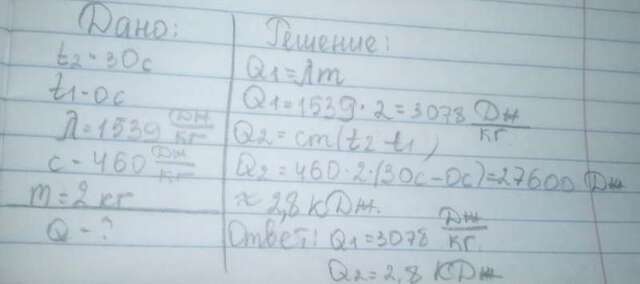 Дано:
t2 = 30c
t1 - 0c
λ = 1539 Дж/кг
c - 460 Дж/кг
m = 2 кг
Q - ?
Решение:
Q1 = λm
Q1 = 1539 · 2 = 3078 Дж/кг
Q2 = cm(t2 - t1)
Q2 = 460 · 2 · (30c - 0c) = 27600 Дж
≈ 2,8 кДж.
Ответ: Q1 = 3078 Дж/кг.
Q2 = 2,8 КДж